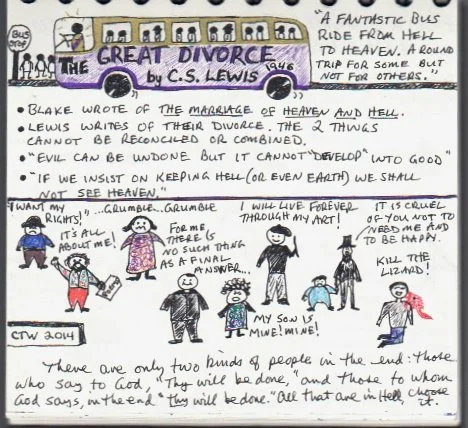 BUS
STOP
THE GREAT DIVORCE
by C.S. LEWIS 1946
"A FANTASTIC BUS
RIDE FROM HELL
TO HEAVEN. A ROUND
TRIP FOR SOME BUT
NOT FOR OTHERS."
• BLAKE WROTE OF THE MARRIAGE OF HEAVEN AND HELL.
• LEWIS WRITES OF THEIR DIVORCE. THE 2 THINGS
CANNOT BE RECONCILED OR COMBINED.
• "EVIL CAN BE UNDONE BUT IT CANNOT "DEVELOP" INTO GOOD"
• "IF WE INSIST ON KEEPING HELL (OR EVEN EARTH) WE SHALL
NOT SEE HEAVEN."
I WANT MY
RIGHTS!"
IT'S ALL
ABOUT ME!
...GRUMBLE...GRUMBLE
FOR ME,
THERE IS
NO SUCH THING
AS A FINAL
ANSWER...
I WILL LIVE FOREVER
THROUGH MY ART!
MY SON IS
MINE! MINE!
IT IS CRUEL
OF YOU NOT TO
NEED ME AND
TO BE HAPPY.
KILL THE
LIZARD!
CTW 2014
There are only two kinds of people in the end: those
who say to God, "Thy will be done," and those to whom
God says, in the end "thy will be done." All that are in Hell, choose
it.